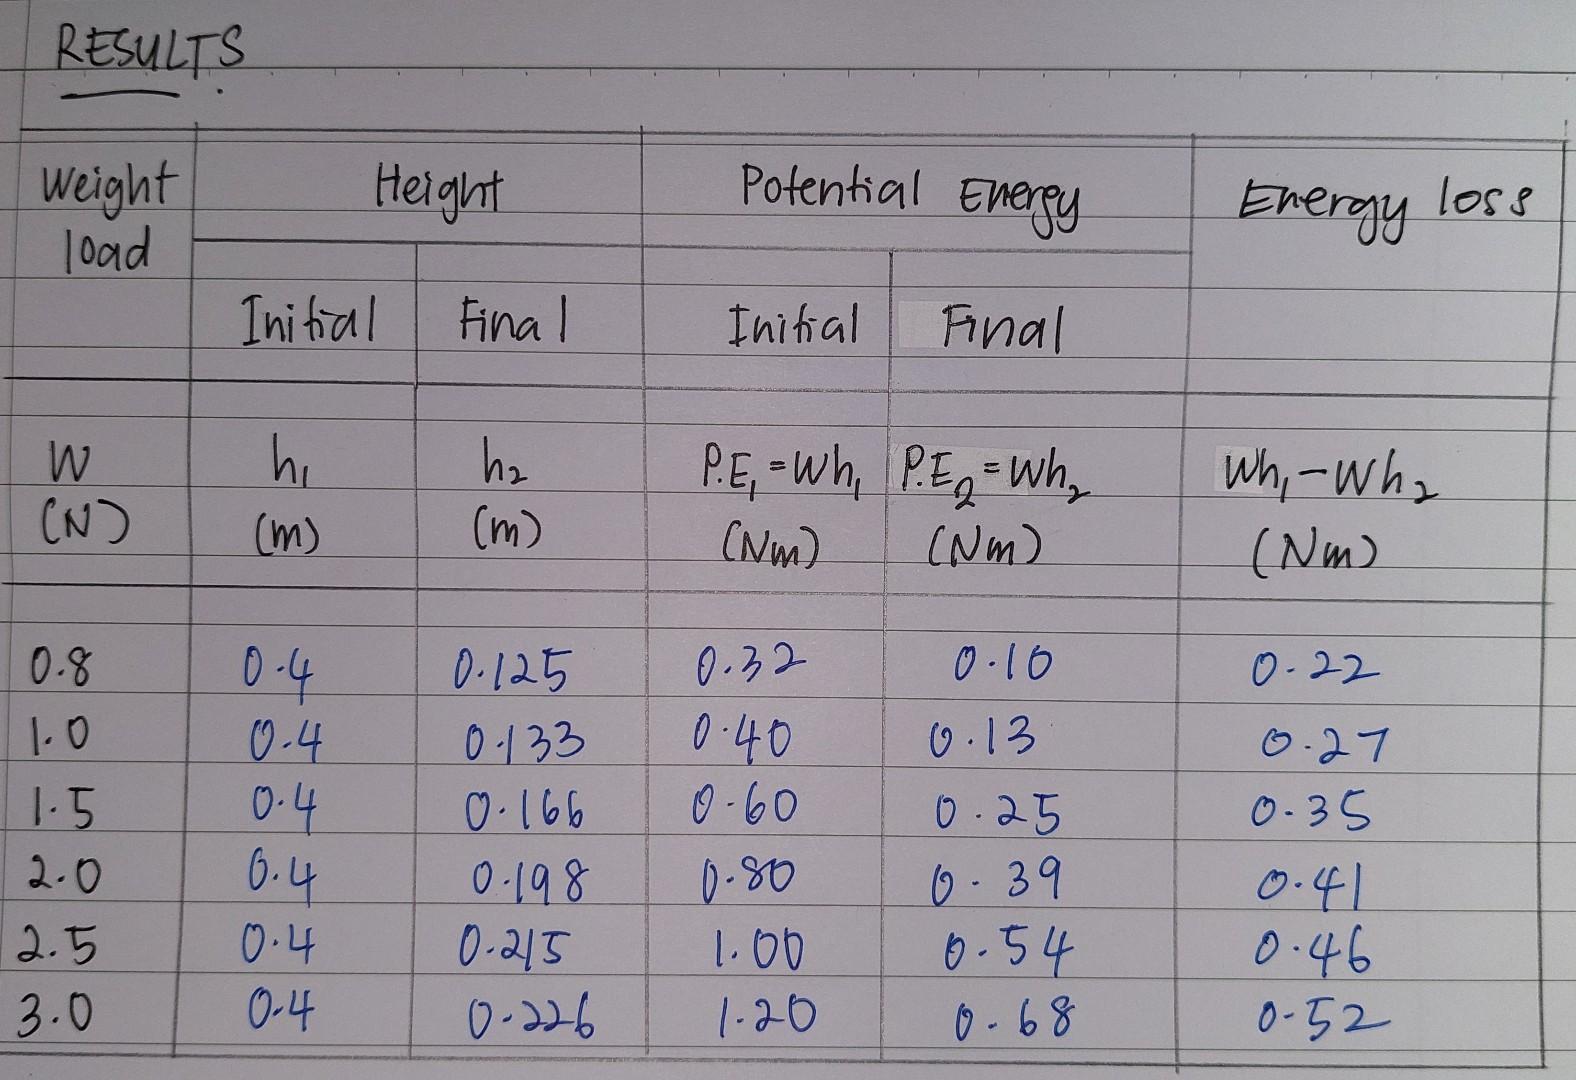 RESULTS
Weight load Height Potential Energy Energy loss
Initial Final Initial Final
W (N) h₁ (m) h₂ (m) P.E₁ = Wh₁ (Nm) P.E₂ = Wh₂ (Nm) Wh₁ - Wh₂ (Nm)
0.8 0.4 0.125 0.32 0.10 0.22
1.0 0.4 0.133 0.40 0.13 0.27
1.5 0.4 0.166 0.60 0.25 0.35
2.0 0.4 0.198 0.80 0.39 0.41
2.5 0.4 0.215 1.00 0.54 0.46
3.0 0.4 0.226 1.20 0.68 0.52